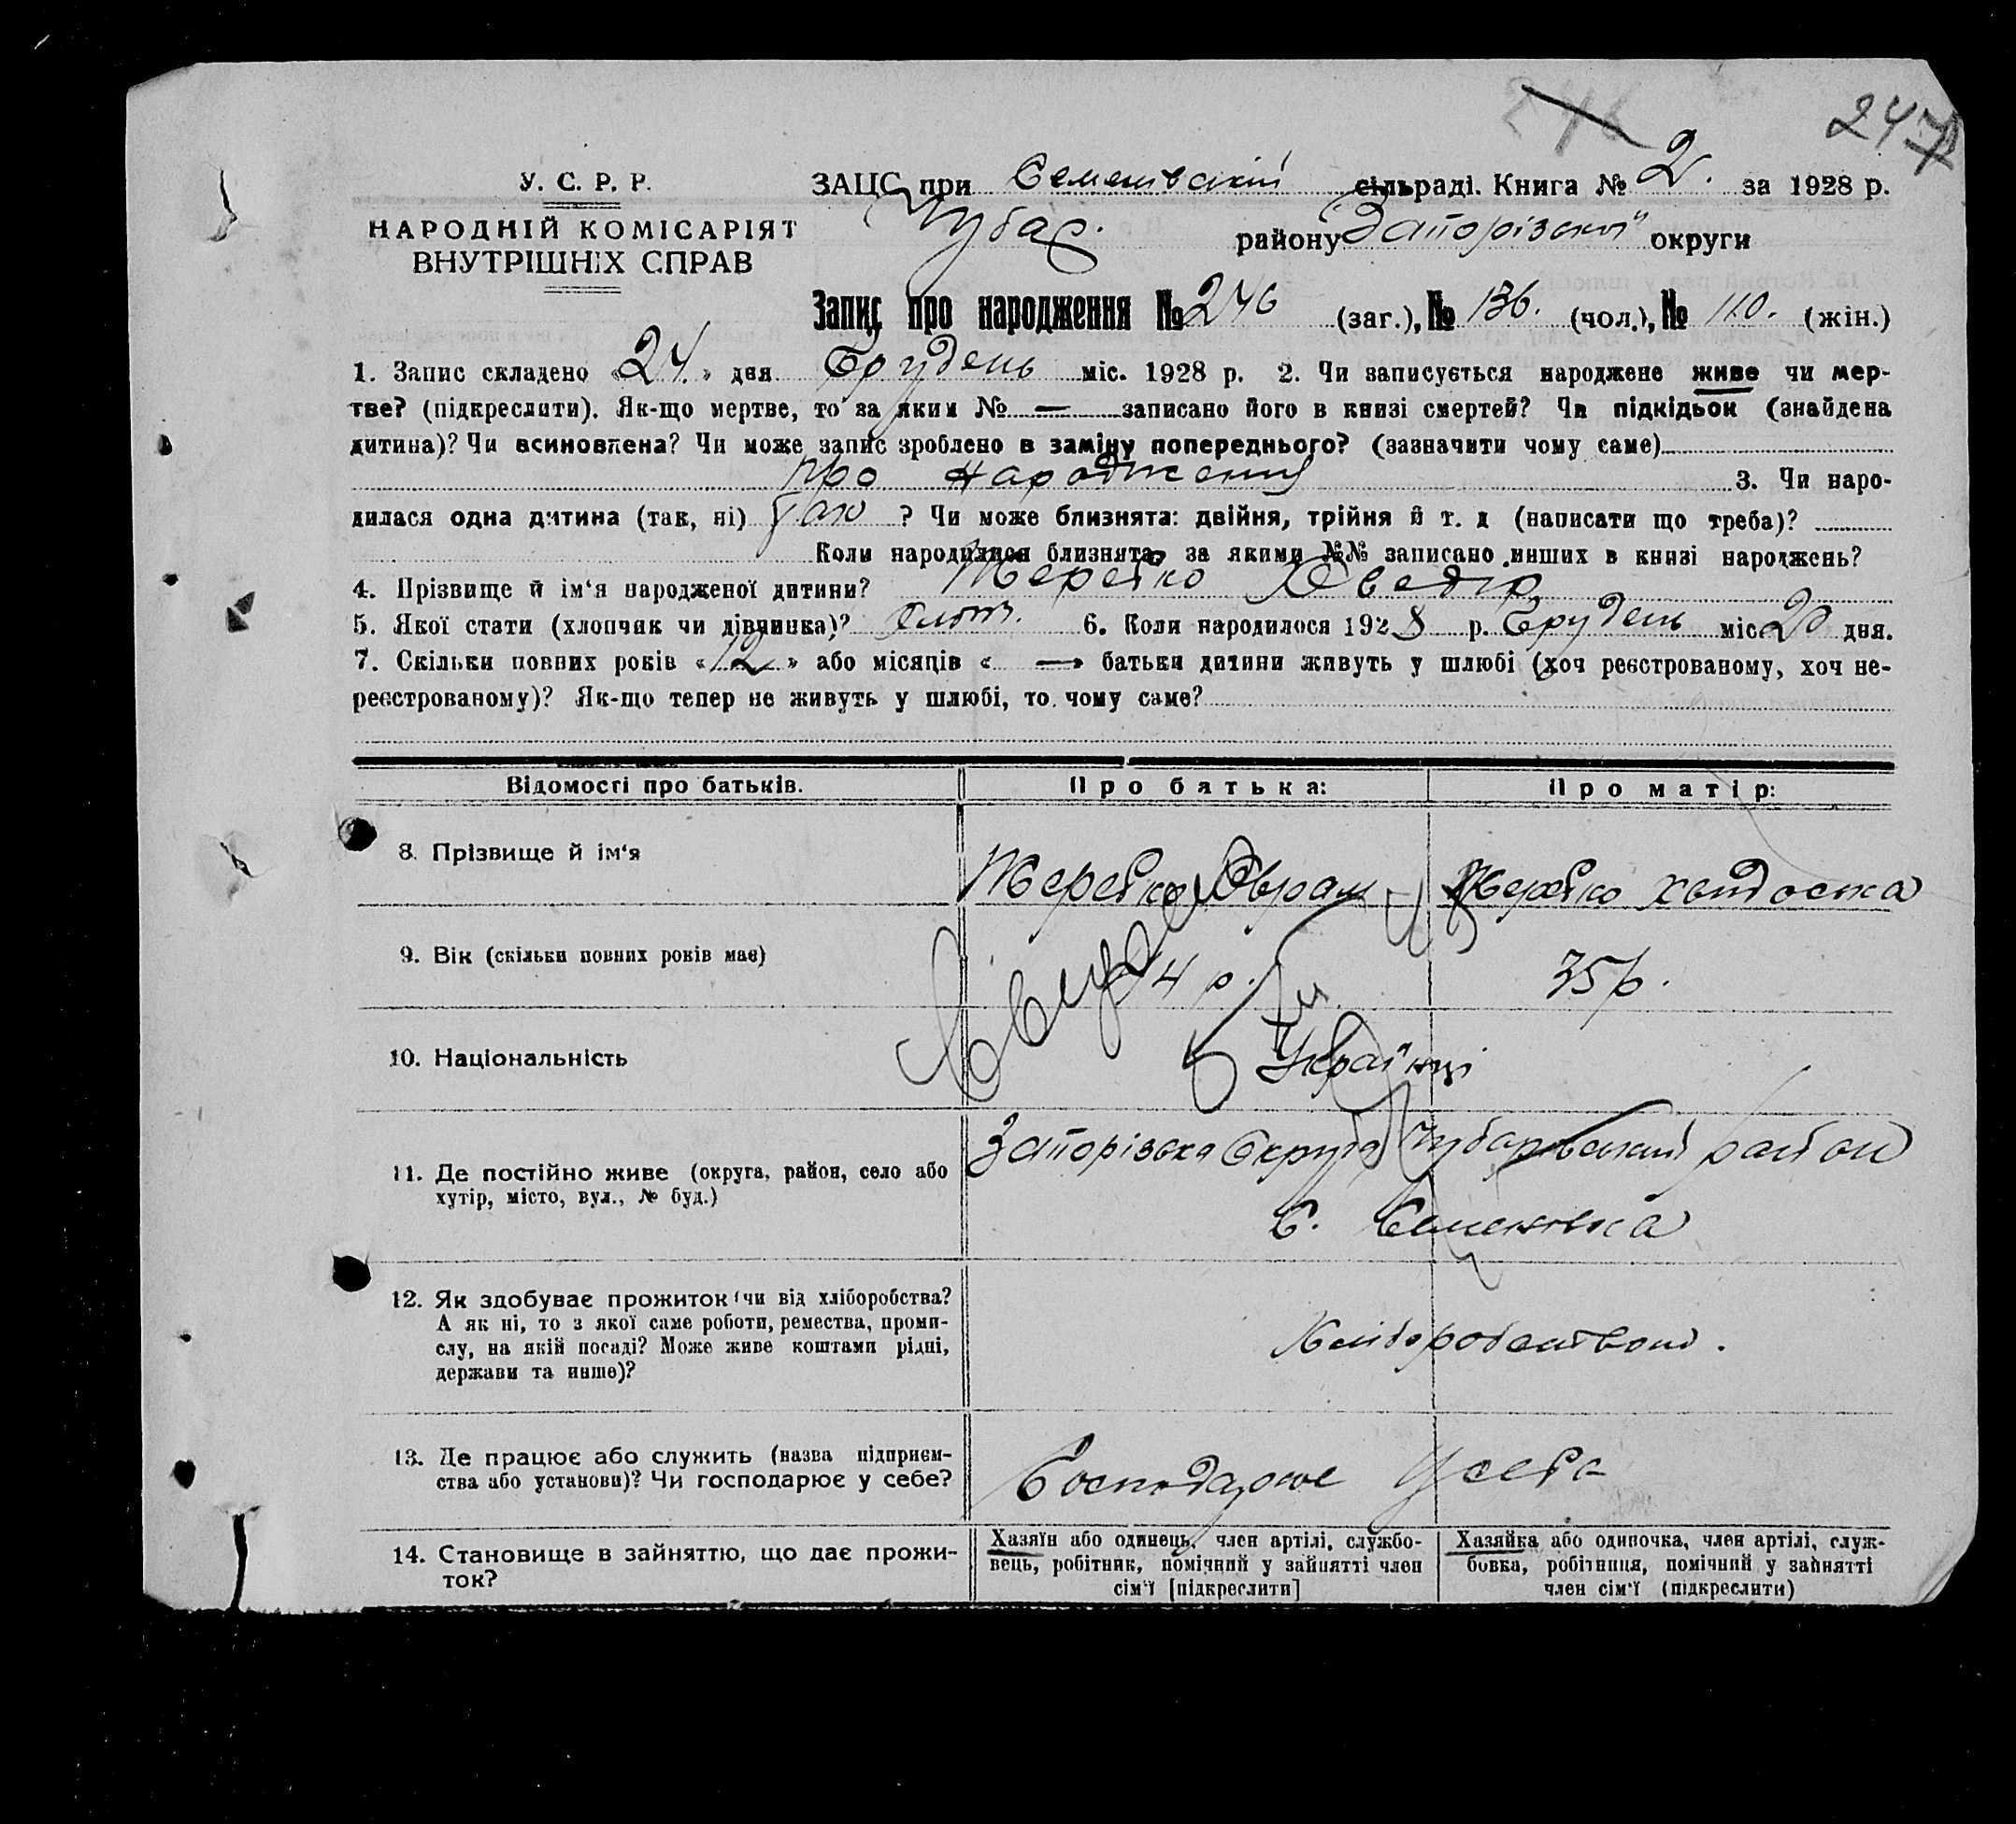 246
247
У. С. Р. Р.
НАРОДНІЙ КОМІСАРІЯТ
ВНУТРІШНІХ СПРАВ
ЗАЦС при Семенівській сільраді. Книга № 2. за 1928 р.
Чубар. району Запорізької округи
Запис про народження № 246 (заг.), № 136. (чол.), № 110. (жін.)
1. Запис складено «24.» дня Грудень міс. 1928 р. 2. Чи записується народжене живе чи мер-
тве? (підкреслити). Як-що мертве, то за яким № — записано його в книзі смертей? Чи підкідьок (знайдена
дитина)? Чи всиновлена? Чи може запис зроблено в заміну попереднього? (зазначити чому саме)
про народження 3. Чи наро-
дилася одна дитина (так, ні) так ? Чи може близнята: двійня, трійня й т. д (написати що треба)?
Коли народилися близнята, за якими №№ записано инших в книзі народжень?
4. Прізвище й ім‘я народженої дитини? Жеребко Хведір
5. Якої стати (хлопчик чи дівчинка)? 6. Коли народилося 1928 р. Грудень міс 20 дня.
7. Скільки повних років «12» або місяців « —» батьки дитини живуть у шлюбі (хоч реєстрованому, хоч не-
реєстрованому)? Як-що тепер не живуть у шлюбі, то чому саме?
Відомості про батьків.
Про батька:
Про матір:
8. Прізвище й ім‘я
Жеребко Оврам
Жеребко Хвидоска
9. Вік (скільки повних років має)
35 р.
10. Національність
Українці
11. Де постійно живе (округа, район, село або
хутір, місто, вул., № буд.)
Запорізська Округа Чубарівський район
С. Семенівка
12. Як здобуває прожиток (чи від хліборобства?
А як ні, то з якої саме роботи, ремества, проми-
слу, на якій посаді? Може живе коштами рідні,
держави та инше)?
Хліборобством.
13. Де працює або служить (назва підприєм-
ства або установи)? Чи господарює у себе?
Господарює у себе
14. Становище в зайняттю, що дає прожи-
ток?
Хазяїн або одинець, член артілі, службо-
вець, робітник, помічний у зайнятті член
сім‘ї [підкреслити]
Хазяйка або одиночка, член артілі, служ-
бовка, робітниця, помічний у зайнятті
член сім‘ї (підкреслити)